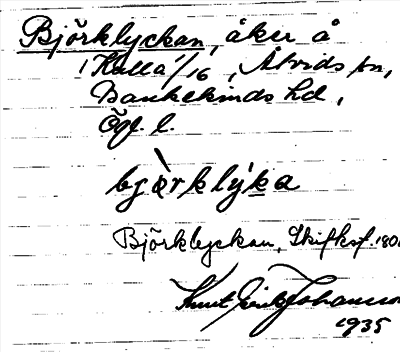 Björklyckan, åker å
Kulla 1/16, Åtvids sn,
Bankekinds hd,
Ögl. l.
bjὼrklýka
Björklyckan, Skifksf. 180
Knut Erik Johansson
1935